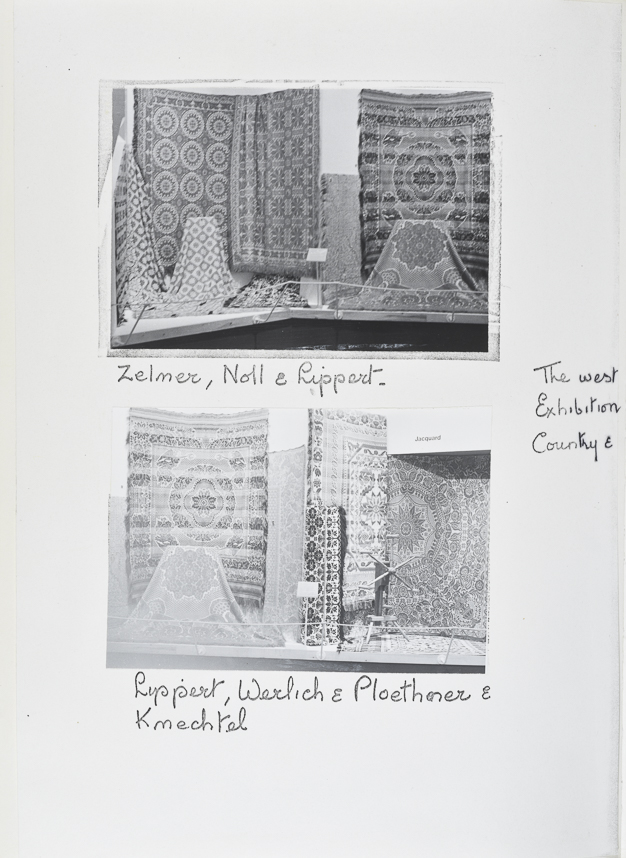 Zelmer, Noll & Lippert.
The west
Exhibition
Country &
Jacquard
Lippert, Werlich & Ploethner &
Knechtel